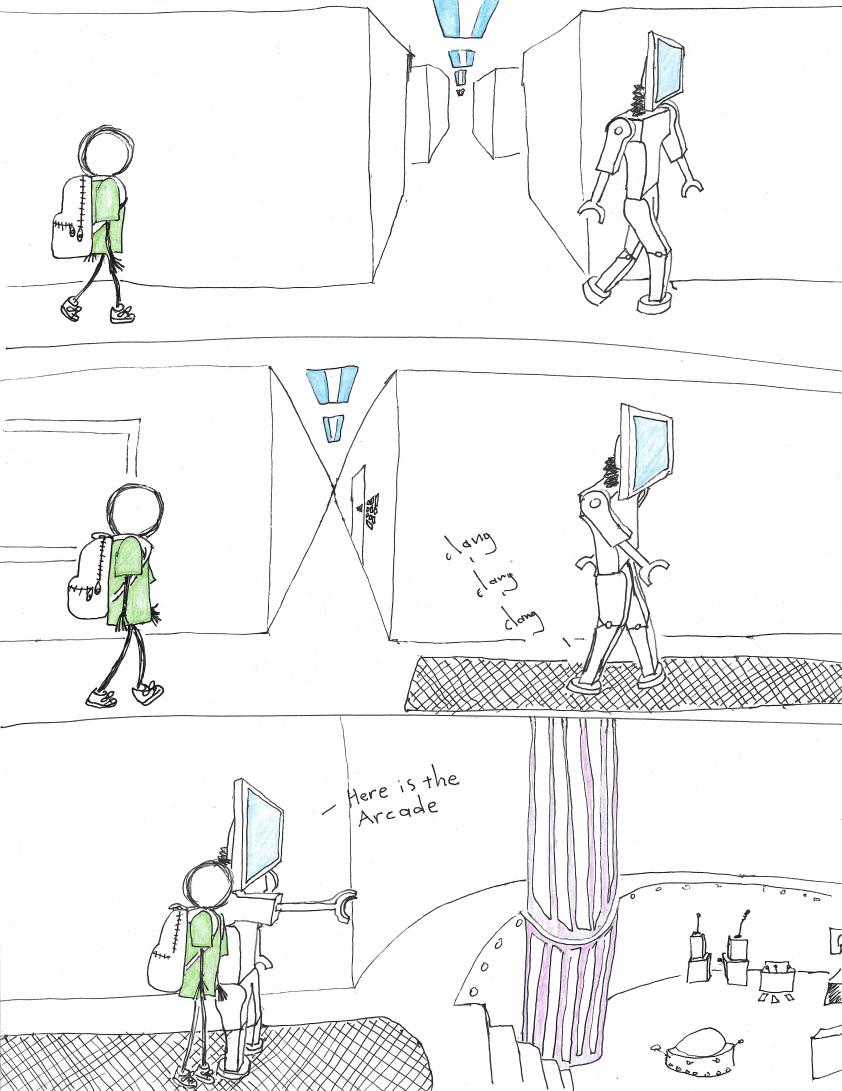 clang
clang
clang
Here is the
Arcade